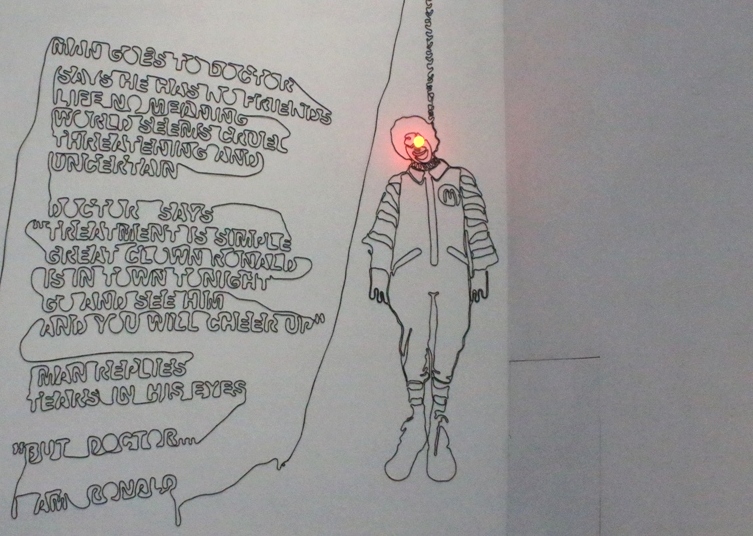 MAN GOES TO DOCTOR
SAYS HE HAS NO FRIENDS
LIFE NO MEANING
WORLD SEEMS CRUEL
THREATENING AND
UNCERTAIN
DOCTOR SAYS
"TREATMENT IS SIMPLE
GREAT CLOWN RONALD
IS IN TOWN TONIGHT
GO AND SEE HIM
AND YOU WILL CHEER UP"
MAN REPLIES
TEARS IN HIS EYES
"BUT DOCTOR....
I AM RONALD
M